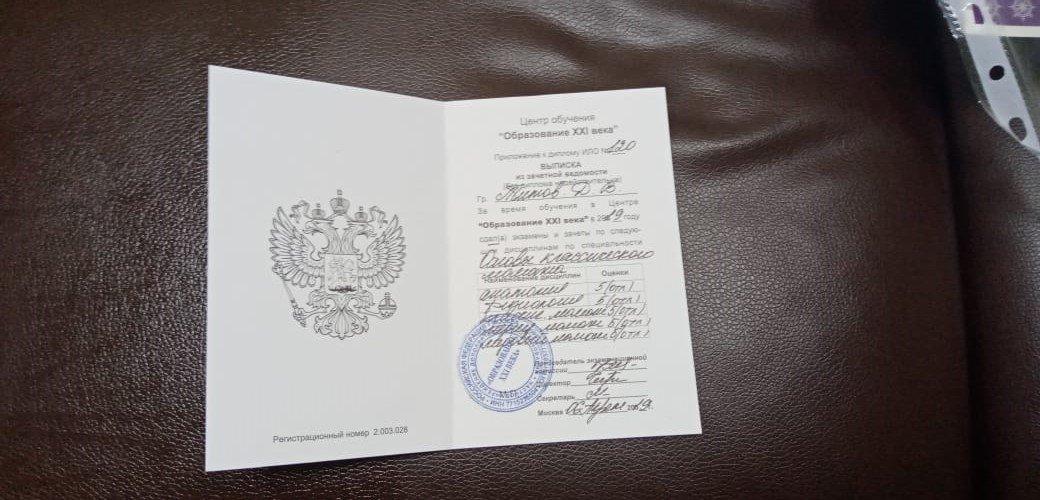 Регистрационный номер 2.003.026
Центр обучения
"Образование XXI века"
Приложение к диплому ИЛО № 120
ВЫПИСКА
из зачетной ведомости
(без диплома недействительна)
Гр. Д. В.
За время обучения в Центре
"Образование XXI века" в 2019 году
сдал(а) экзамены и зачеты по следую-
щим дисциплинам по специальности
классического
массажа
Наименование дисциплин Оценки
анатомия 5 (отл)
физиология 5 (отл)
5 (отл)
5 (отл)
5 (отл)
ОБРАЗОВАНИЕ
XXI ВЕКА
Председатель экзаменационной
комиссии
Директор
Секретарь
Москва 2019.